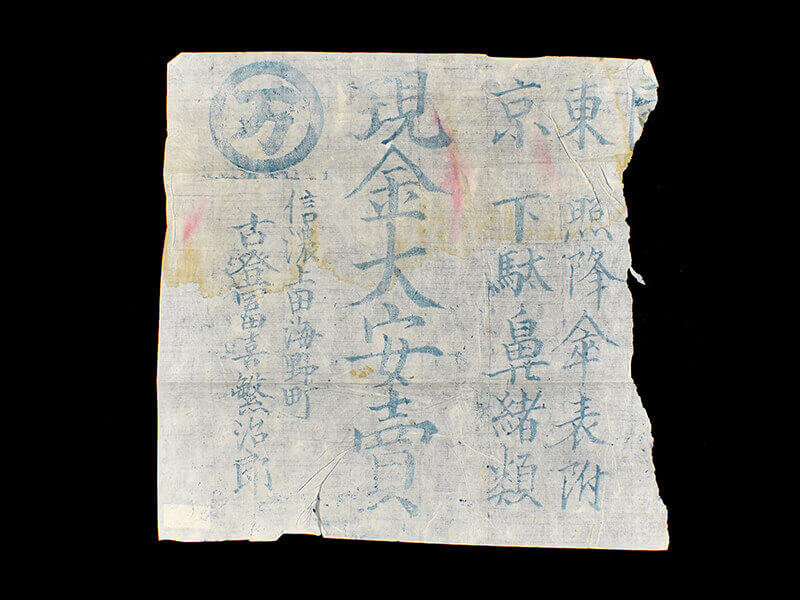 東 照降傘表附
京 下駄鼻緒類
現金大安賣
万
信濃上田海野町
古登富喜繁治郎